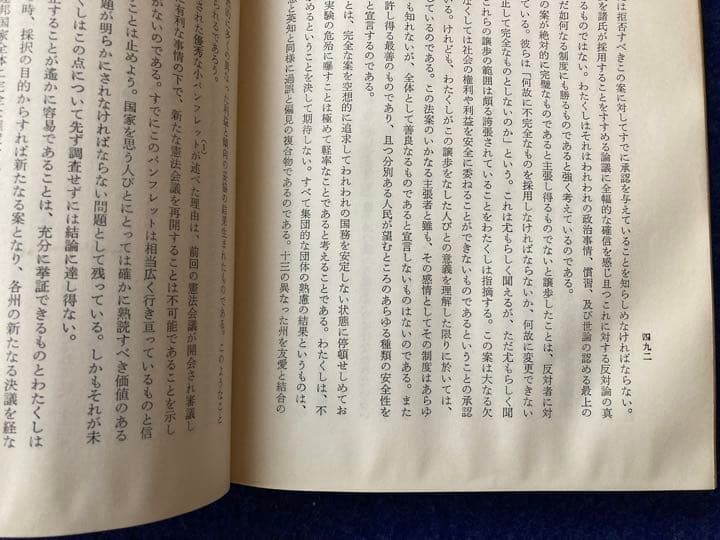 四九二
は拒否すべきこの案に対してすでに承認を与えていることを知らしめなければならない。
を諸氏が採用することをすすめる論議に全幅的な確信を感じ且つこれに対する反対論の真
るものではない。わたくしはそれはわれわれの政治事情、慣習、及び世論の認める最上の
だ如何なる制度にも勝るものであると強く考えているのである。
の案が絶対的に完璧なものであると主張し得るものでないと譲歩したことは、反対者に対
ている。彼らは「何故に不完全なものを採用しなければならないか、何故に変更できない
正して完全なものとしないのか」という。これは尤もらしく聞えるが、ただ尤もらしく聞
これらの譲歩の範囲は頗る誇張されていることをわたくしは指摘する。この案は大なる欠
なくしては社会の権利や利益を安全に委ねることができないものであるということの承認
ている。けれども、わたくしがこの譲歩をなした人びとの意義を理解した限りに於いては、
っているのである。この法案のいかなる主張者と雖も、その感情としてその制度はあらゆ
も知れないが、全体として善良なるものであると宣言しないものはないのである。また
許し得る最善のものであり、且つ分別ある人民が望むところのあらゆる種類の安全性を
と宣言するのである。
は、完全な案を空想的に追求してわれわれの国務を安定しない状態に停頓せしめてお
実験の危殆に曝すことは極めて軽率なことであると考えることである。わたくしは、不
めるということを決して期待しない。すべて集団的な団体の熟慮の結果というものは、
と英知と同様に過誤と偏見の複合物であるのである。十三の異なった州を友愛と結合の
の結果生まれたものである。このようなこと
されるであろう。
された優秀な小パンフレットが述べた理由は、前回の憲法会議が開会され審議し
有利な事情の下で、新たな憲法会議を再開することは不可能であることを示し
ないのである。すでにこのパンフレットは相当広く行き亘っているものと信
ことは止めよう。国家を思う人びとにとっては確かに熟読すべき価値のある
題が明らかにされなければならない問題として残っている。しかもそれが未
くしはこの点について先ず調査せずには結論に達し得ない。
正することが遙かに容易であることは、充分に挙証できるものとわたくしは
時、採択の目的からすれば新たなる案となり、各州の新たなる決議を経な